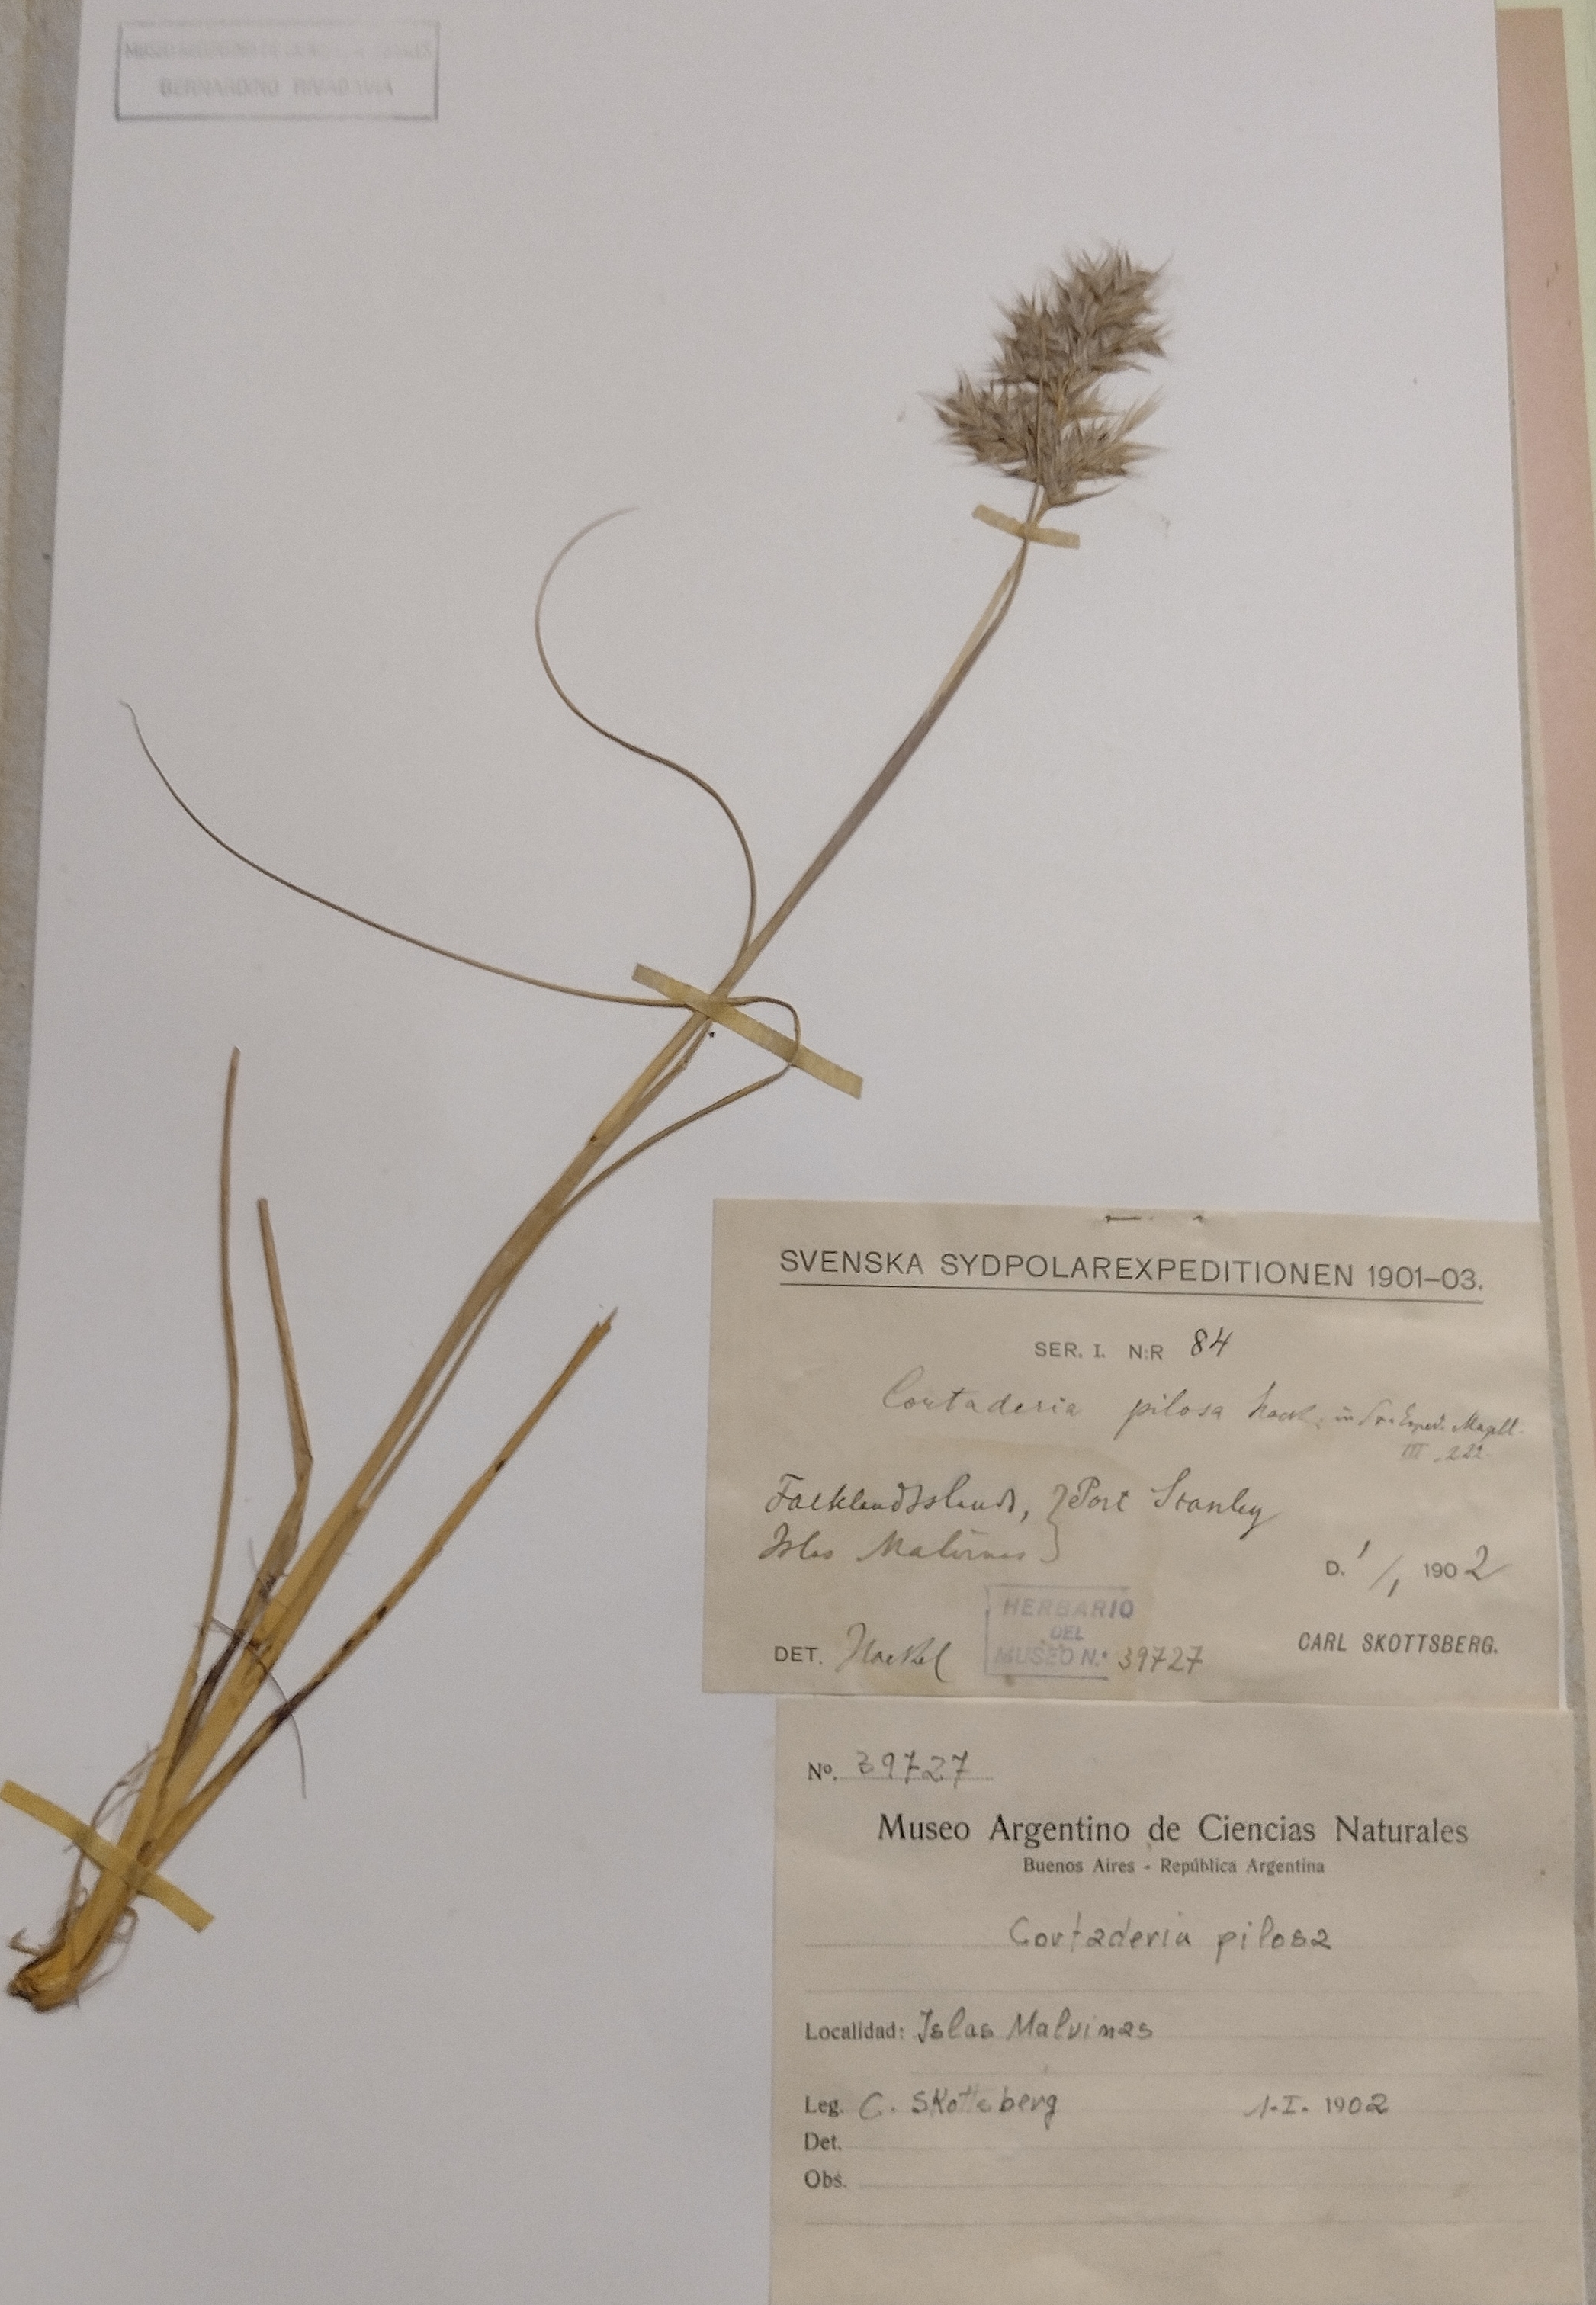 MUSEO ARGENTINO DE CIENCIAS NATURALES
BERNARDINO RIVADAVIA
SVENSKA SYDPOLAREXPEDITIONEN 1901–03.
SER. I. N:R 84
Cortaderia pilosa Hack. in Magell.
III, 222
Falklandsislands, } Port Stanley
Islas Malvinas }
D. 1/1 1902
HERBARIO
DEL
MUSEO N.º 39727
DET. Hackel
CARL SKOTTSBERG.
Nº. 39727
Museo Argentino de Ciencias Naturales
Buenos Aires - República Argentina
Cortaderia pilosa
Localidad: Islas Malvinas
Leg. C. Skottsberg 1-I-1902
Det.
Obs.